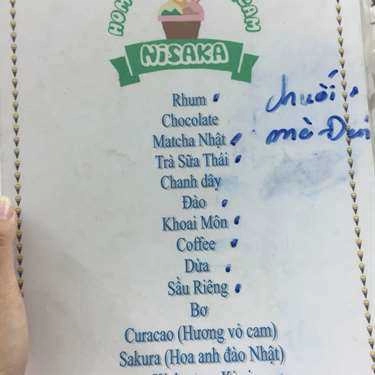 NiSAKA
Rhum
Chocolate
Matcha Nhật
Trà Sữa Thái
Chanh dây
Đào
Khoai Môn
Coffee
Dừa
Sầu Riêng
Bơ
Curacao (Hương vỏ cam)
Sakura (Hoa anh đào Nhật)
chuối
mè Đen